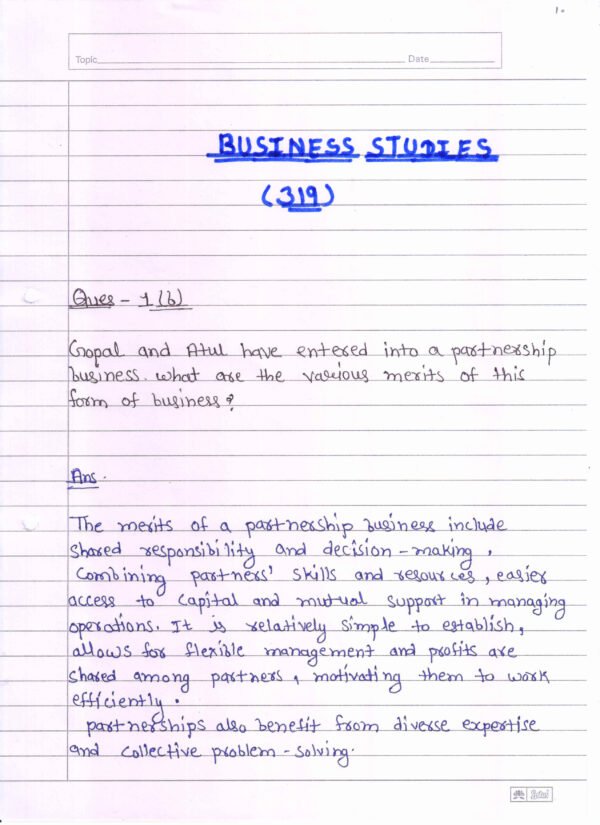 1.
Topic Date
BUSINESS STUDIES
(319)
Ques - 1(b)
Gopal and Atul have entered into a partnership
business. what are the various merits of this
form of business?
Ans.
The merits of a partnership business include
shared responsibility and decision-making,
Combining partners' skills and resources, easier
access to capital and mutual support in managing
operations. It is relatively simple to establish,
allows for flexible management and profits are
shared among partners, motivating them to work
efficiently.
partnerships also benefit from diverse expertise
and collective problem-solving.